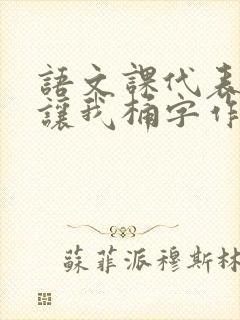 語文課代表
讓我桶字作
蘇菲派穆斯林